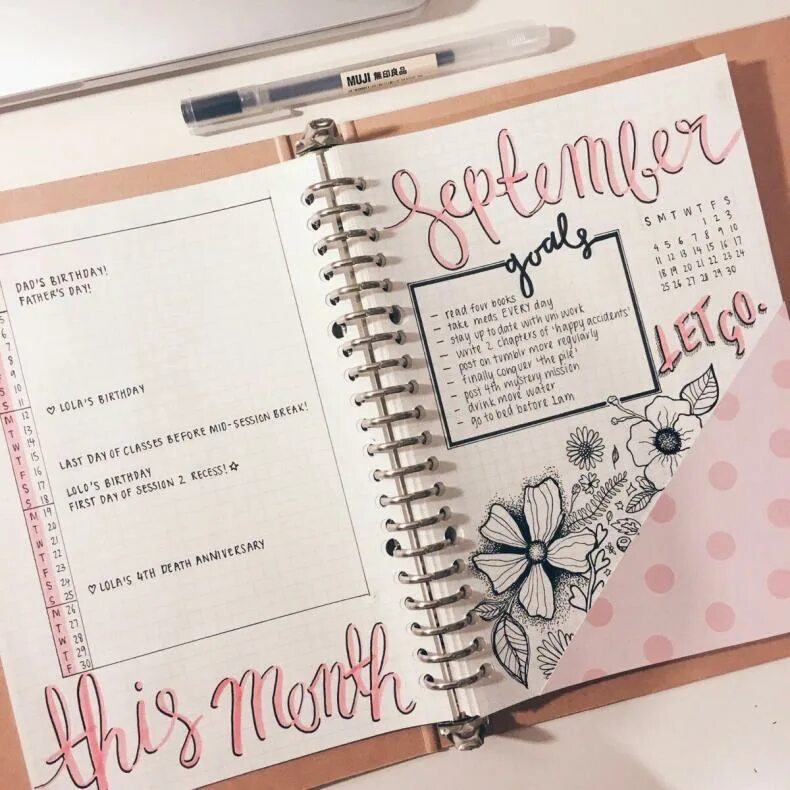 MUJI 無印良品
DAD'S BIRTHDAY!
FATHER'S DAY!
♡ LOLA'S BIRTHDAY
LAST DAY OF CLASSES BEFORE MID-SESSION BREAK!
LOLO'S BIRTHDAY
FIRST DAY OF SESSION 2 RECESS! ☆
♡ LOLA'S 4TH DEATH ANNIVERSARY
5
6
7
8
9
S 10
S 11
M 12
T 13
W 14
T 15
F 16
S 17
S 18
M 19
T 20
W 21
T 22
F 23
S 24
S 25
M 26
T 27
W 28
T 29
F 30
this month
September
goals
- read four books
- take meds EVERY day
- stay up to date with uni work
- write 2 chapters of 'happy accidents'
- post on tumblr more regularly
- finally conquer 'the pile'
- post 4th mystery mission
- drink more water
- go to bed before 1am
S M T W T F S
1 2 3
4 5 6 7 8 9 10
11 12 13 14 15 16 17
18 19 20 21 22 23 24
25 26 27 28 29 30
LET GO.